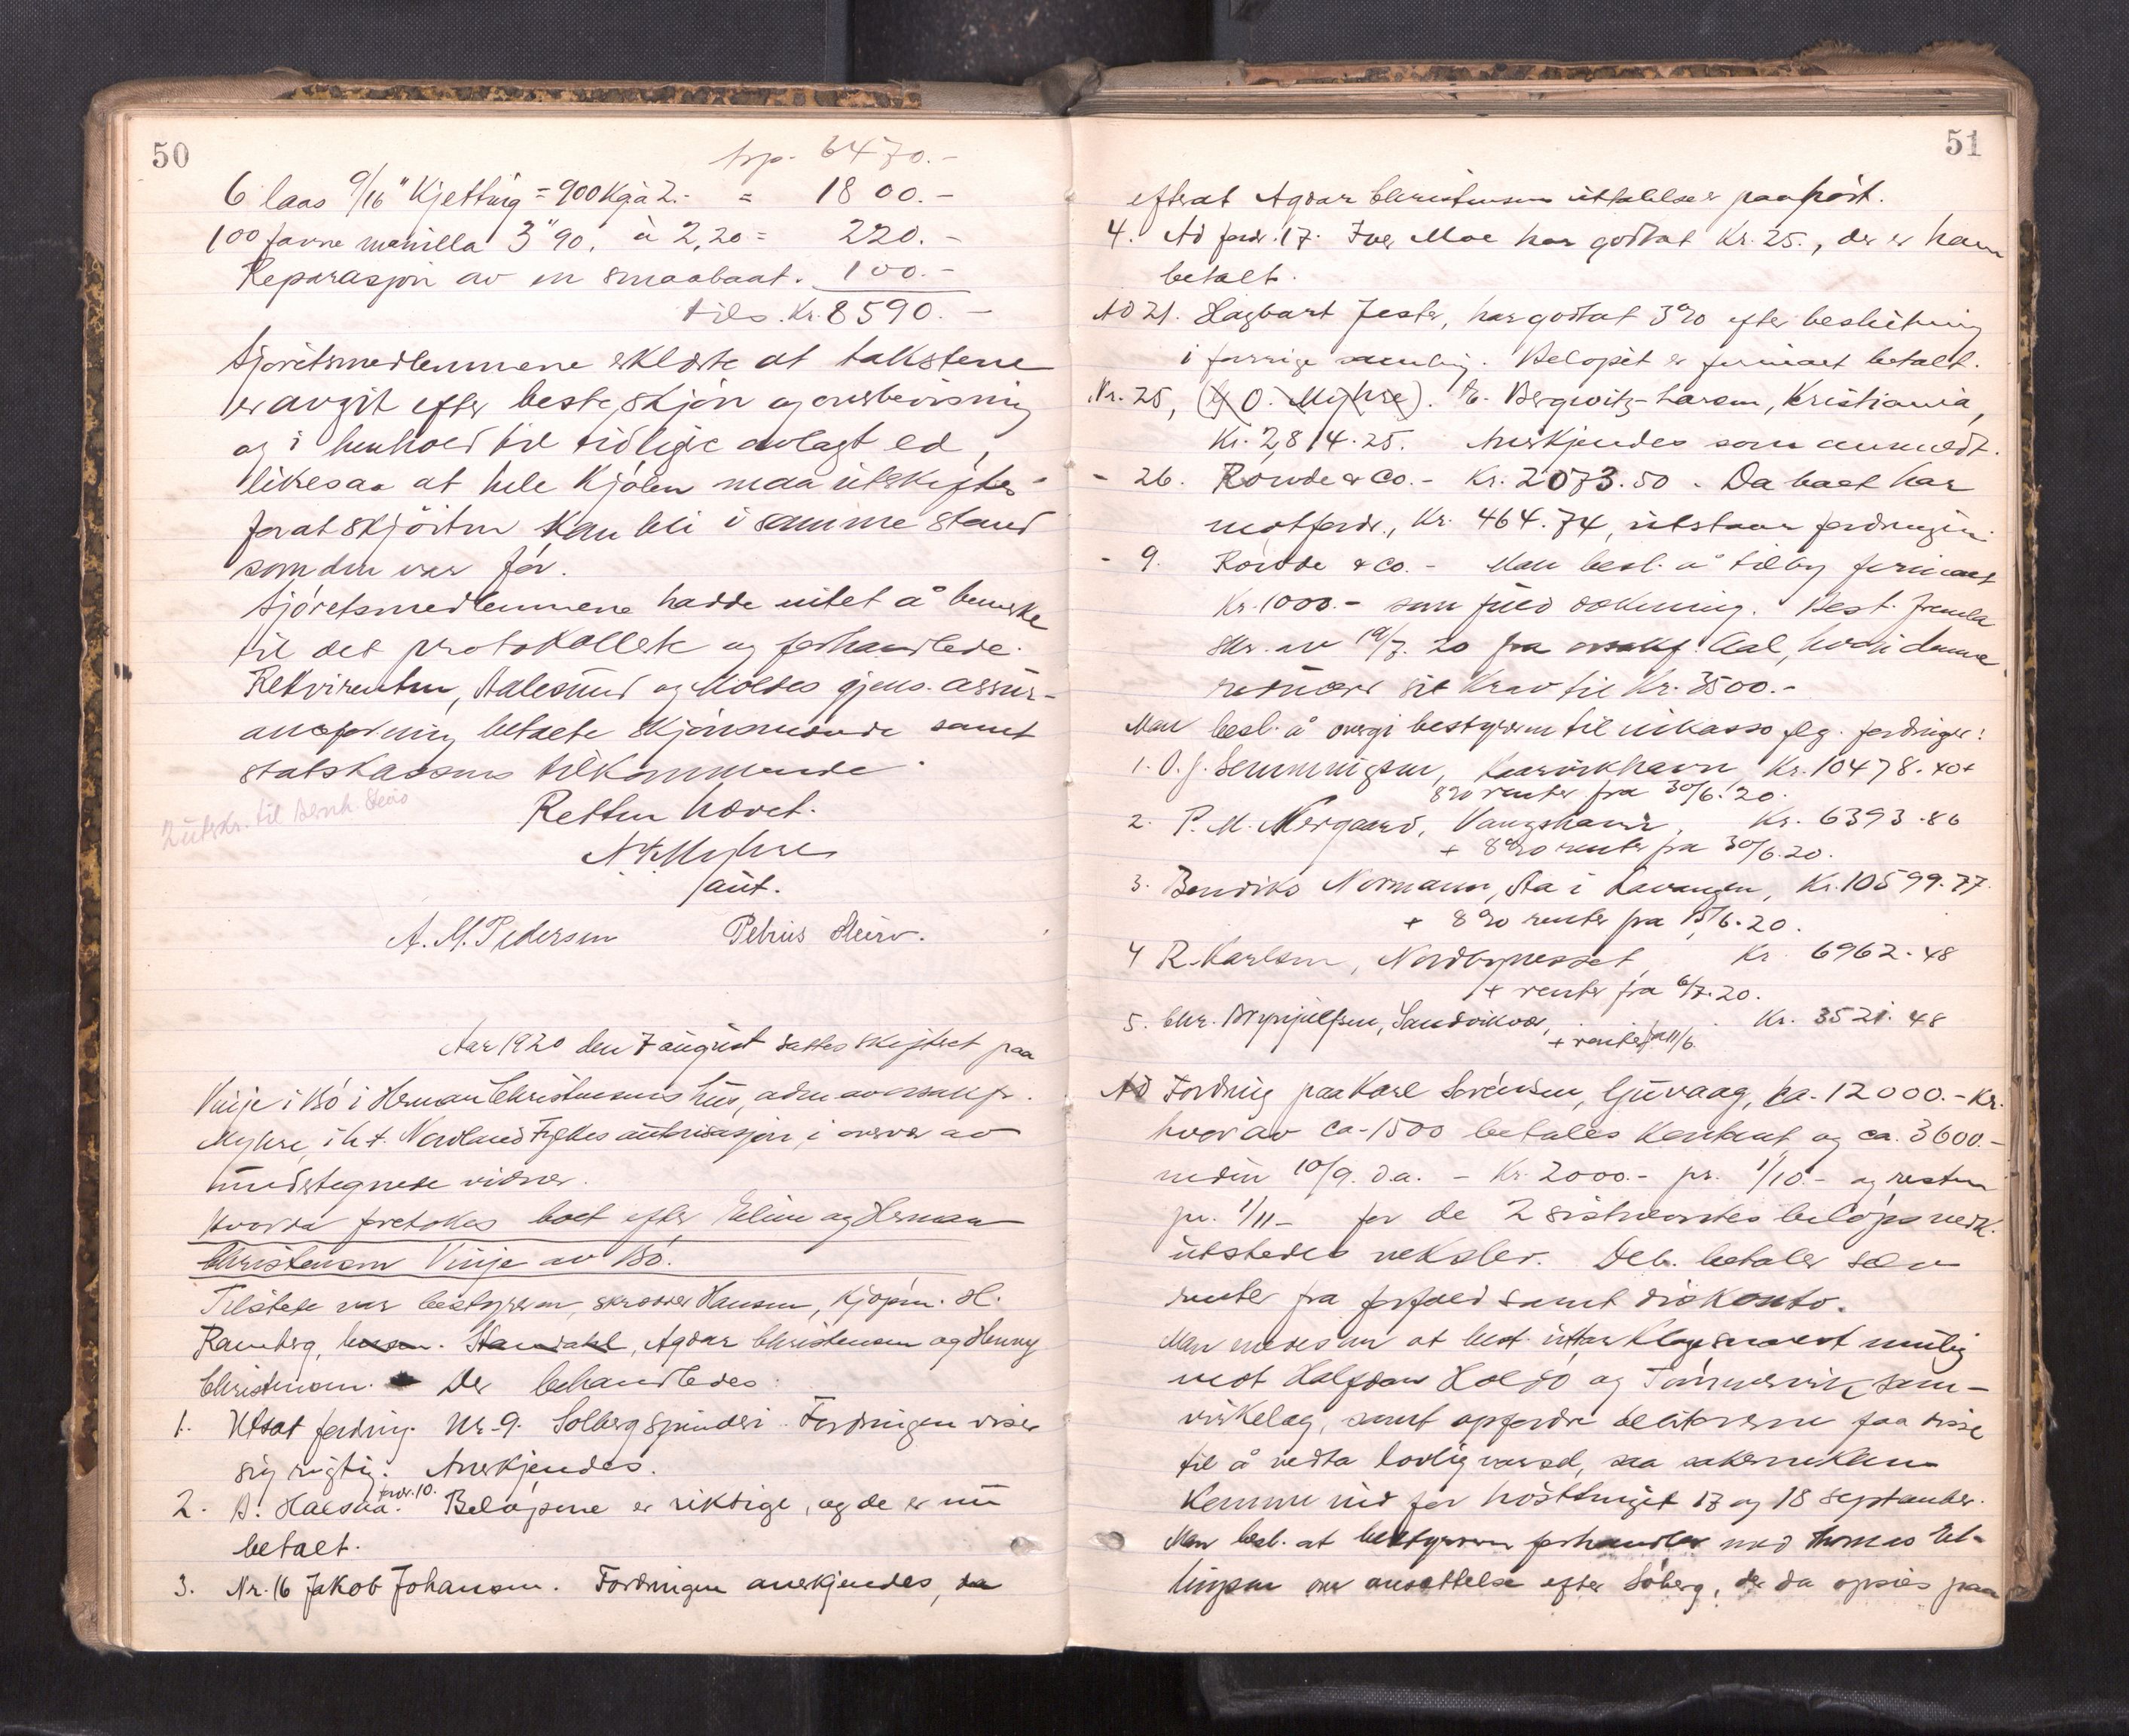 50
trp. 6470.-
6 laas 9/16" Kjetting = 900 Kg à 2.- = 1800.-
100 favne manilla 3" 90. à 2,20 = 220.-
Reparasjon av en smaabaat. 100.-
tils. Kr. 8590.-
Sjøretsmedlemmene erklærte at takstene
er avgit efter beste skjøn og overbevisning
og i henhold til tidligere avlagt ed,
likesaa at hele Kjølen maa utskiftes
forat skjøiten kan bli i samme stand
som den var før.
Sjøretsmedlemmene hadde intet å bemerke
til det protokollerte og forhandlede.
Rekvirenten, Aalesund og Moldes gjens. assur-
anceforening betalte skjønsmænde samt
statskassens tilkommende.
2 utskr. til Bernh.
Retten hævet.
A. Myhre
aut.
A. M. Pedersen Petrus
Aar 1920 den 7 august sattes skifteret paa
Vinje i Bø i Herman Christensens hus, adm av
Myhre, i h.t. Nordland Fylkes autorisasjon, i overvær av
undertegnede vidner.
Hvorda foretokes boet efter Eline og Herman
Christensen Vinje av Bø.
Tilstede var bestyreren, skrædder Hansen, kjøpm. H.
Ramberg, Agdar Christensen og Henny
Christensen. Der behandledes:
1. Utsat fordring Nr. 9. Solberg spinderi. Fordringen viser
sig rigtig. Anerkjendes.
2. B. Halsaa. fordr. 10. Beløpene er riktige, og de er nu
betalt.
3. Nr. 16 Jakob Johansen. Fordringen anerkjendes, da
51
efterat Agdar Christensen uttalelse er paahørt.
4. Ad fordr. 17. Iver Moe har godtat Kr. 25., der er ham
betalt.
Ad 21. Hagbart Jester, har godtat 3% efter beslutning
i forrige samling. Beløpet er firmaet betalt.
Nr. 25, (H O. Myhre). E. Bergwitz-Larsen, Kristiania,
Kr. 2,814.25. Anerkjendes som anmeldt.
- 26. Rowde & Co. - Kr. 2073.50. Da boet har
motfordr., Kr. 464.74, utstaar fordringen.
- 9. Rowde & Co. - Man besl. å tilby firmaet
Kr. 1000.- som fuld dækning. Best. fremla
skr. av 19/7. 20 fra Aal, hvori denne
reducerer sit krav til Kr. 3500.-
Man besl. å overgi bestyreren til inkasso flg. fordringer:
1. O. J. Semmingsen, Kr. 10478.40 +
8% renter fra 30/6. 20.
2. P. M. Nergaard, Vangshavn, Kr. 6393.86
+ 8% renter fra 30/6.20.
3. Bendiks Normann, Aa i Lavangen, Kr. 10599.77.
+ 8% renter fra 15/6.20.
4 R. Karlsen, Kr. 6962.48
+ renter fra 6/7.20.
5. Chr. Brynjulfsen, Sandvikvær, Kr. 3521.48
+ renter fra 11/6.
Ad Fordring paa Karl Sørensen, Gjuvaag, ca. 12000.- Kr.
hvorav ca. 1500 betales kontant og ca. 3600.-
inden 10/9. d.a. - Kr. 2000.- pr. 1/10.- og resten
pr. 1/11 - for de 2 sistnævntes beløps vedk.
utstedes veksler. Deb. betaler selv
renter fra forfald samt diskonto.
Man enedes om at best. uttar klage snarest mulig
mot Halfdan Holdø og Tømmervik sam-
virkelag, samt opfordre debitorerne paa disse
til å vedta lovlig varsel, saa sakerne kan
komme ind for høsttinget 17 og 18 september.
Man besl. at bestyreren forhandler med Thomas El-
lingsen om ansettelse efter Søberg, der da opsies paa